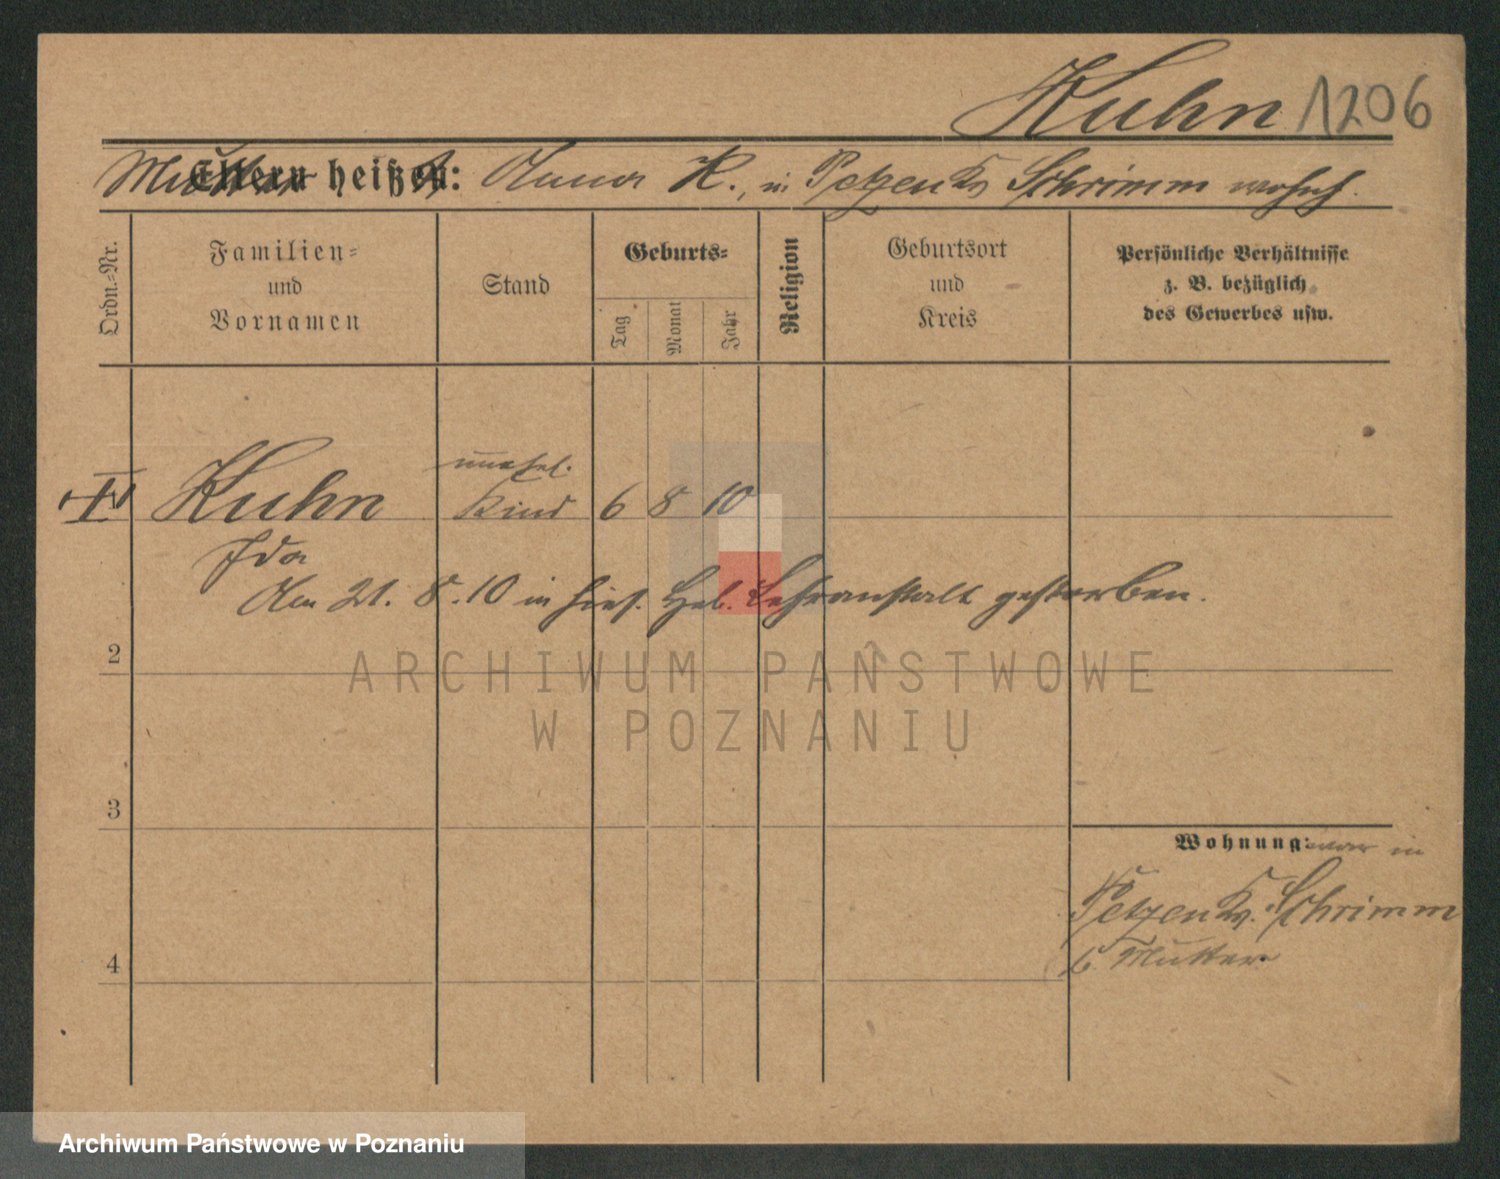 Kuhn 1206
Mutter Eltern heißen: Anna K., in Petzen Kr. Schrimm wohnh.
Ordn.=Nr.
Familien=
und
Vornamen
Stand
Geburts=
Tag
Monat
Jahr
Religion
Geburtsort
und
Kreis
Persönliche Verhältnisse
z. B. bezüglich
des Gewerbes usw.
unehel.
Kuhn Kind 6 8 10
Ida
Am 21. 8. 10 in hies. Heb. Lehranstalt gestorben.
2
ARCHIWUM PAŃSTWOWE
W POZNANIU
3
Wohnung: war in
Petzen Kr. Schrimm
b. Mutter
4
Archiwum Państwowe w Poznaniu